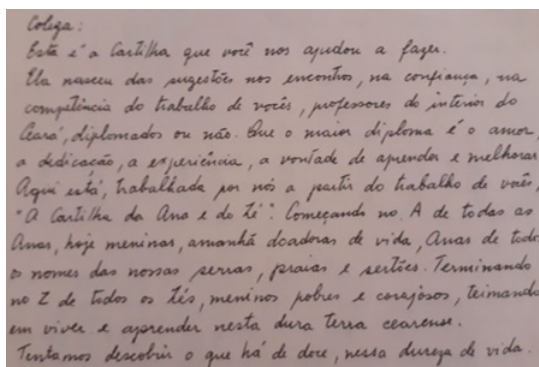 Colega:
Esta é a Cartilha que você nos ajudou a fazer.
Ela nasceu das sugestões nos encontros, na confiança, na
competência do trabalho de vocês, professores do interior do
Ceará, diplomados ou não. Que o maior diploma é o amor,
a dedicação, a experiência, a vontade de aprender e melhorar.
Aqui está, trabalhada por nós a partir do trabalho de vocês,
"A Cartilha da Ana e do Zé". Começando no A de todas as
Anas, hoje meninas, amanhã doadoras de vida, Anas de todos
os nomes das nossas serras, praias e sertões. Terminando
no Z de todos os Zés, meninos pobres e corajosos, teimando
em viver e aprender nesta dura terra cearense.
Tentamos descobrir o que há de doce, nessa dureza de vida.